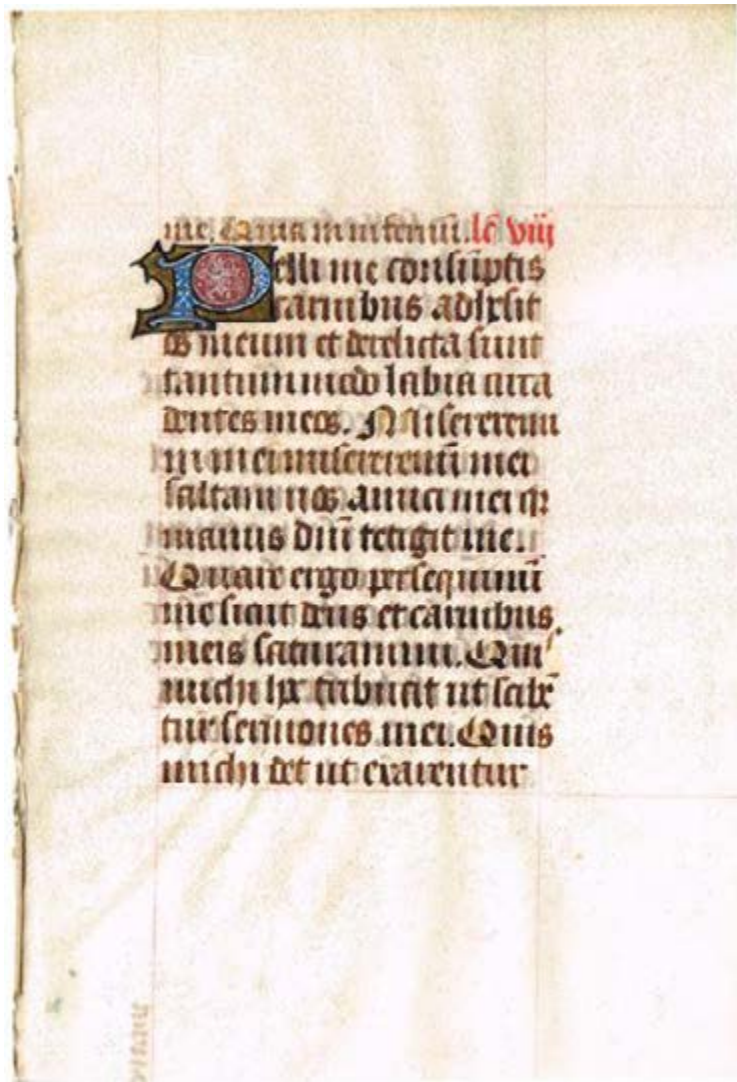 me. Quia in inferno. lc̄ viij
Pelli me consūptis
carnibus adhesit
os meum et derelicta sunt
tantummodo labia circa
dentes meos. Miseremi
ni mei miseremini mei
saltem vos amici mei qr
manus dn̄i tetigit me.
Quare ergo persequimini
me sicut deus et carnibus
meis saturamini. Quis
michi hoc tribuat ut scribā
tur sermones mei. Quis
michi det ut exarentur